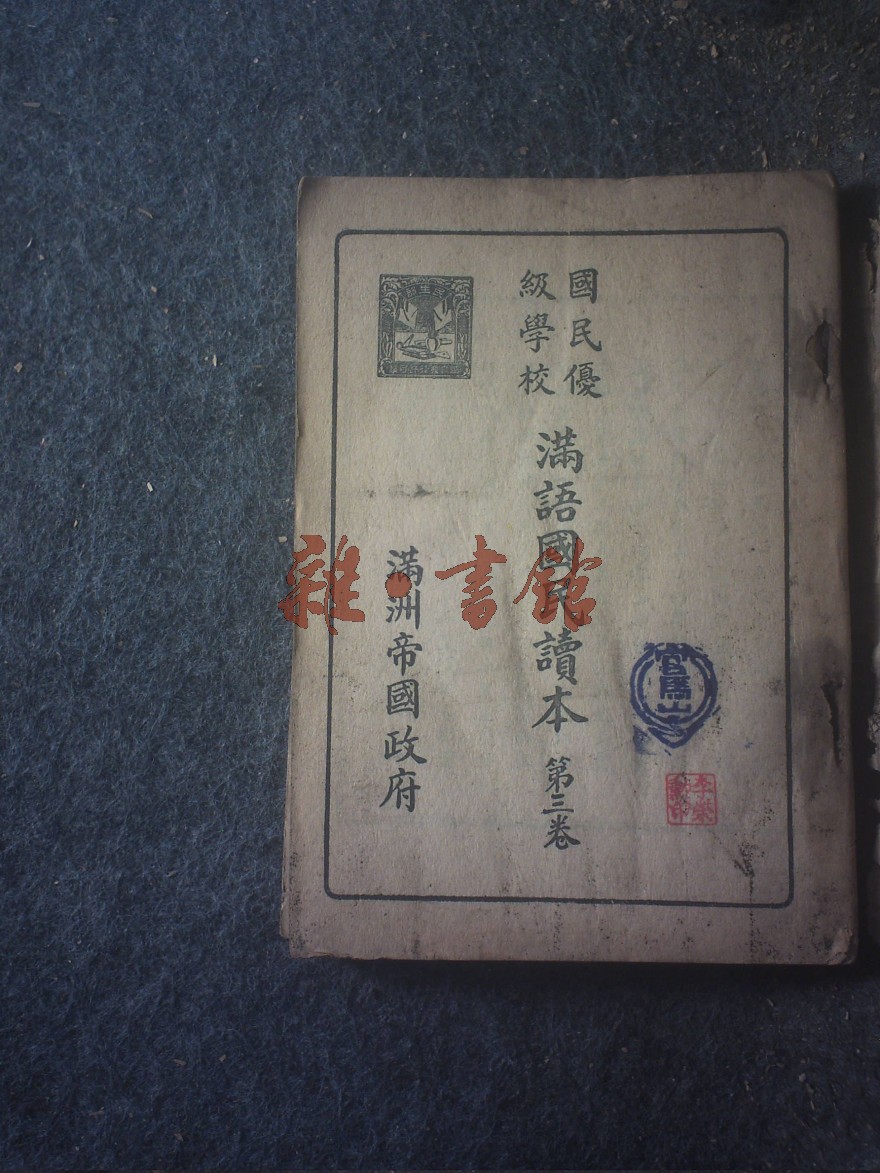 國民優
級學校
滿語國民讀本 第三卷
滿洲帝國政府
雜·書館